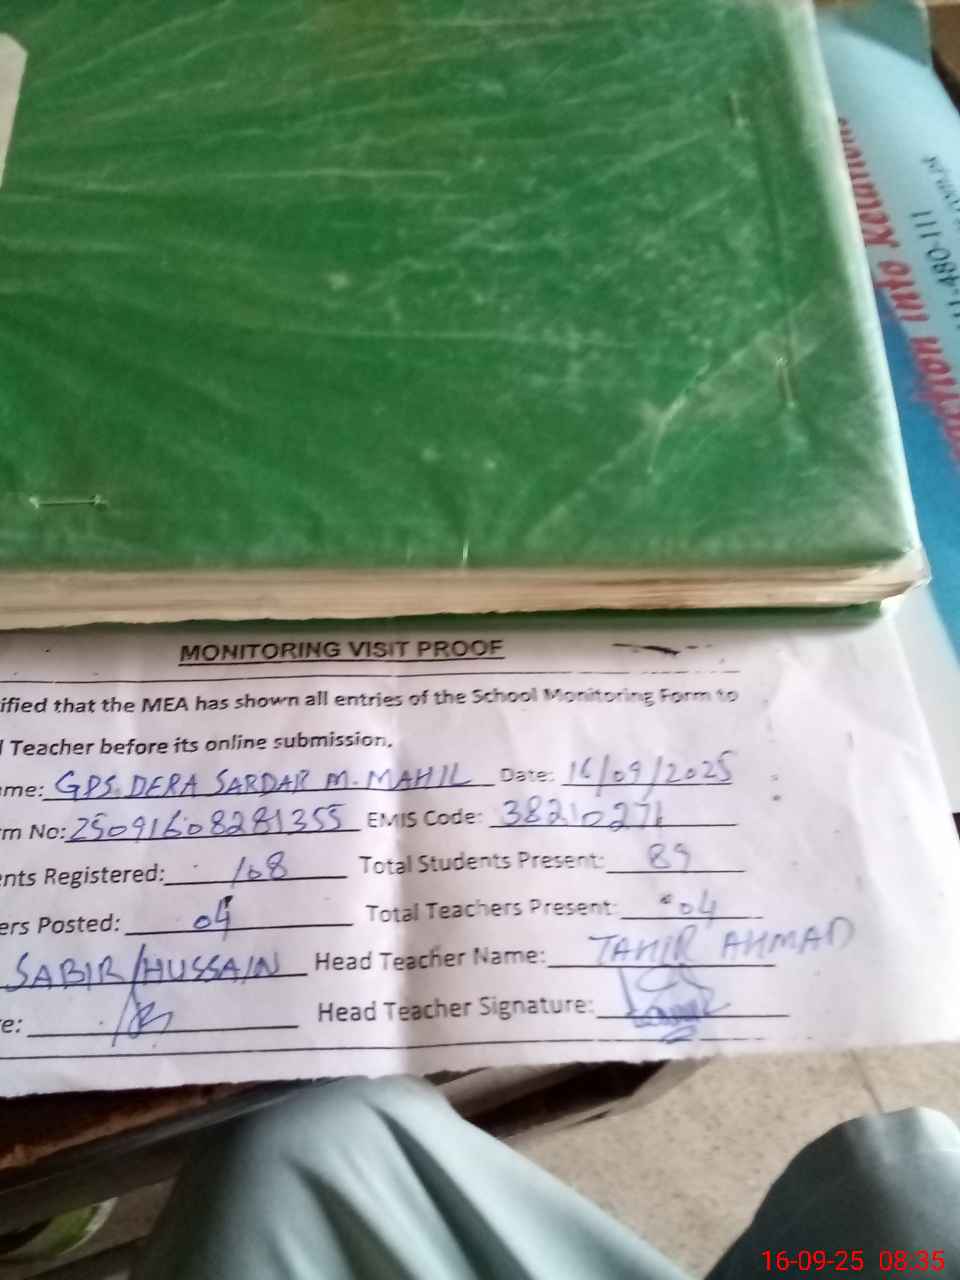 111-480-111
into Relations
MONITORING VISIT PROOF
ified that the MEA has shown all entries of the School Monitoring Form to
Teacher before its online submission.
me: GPS. DERA SARDAR M. MAHIL Date: 16/09/2025
m No: 25091608281355 EMIS Code: 38210271
nts Registered: 108 Total Students Present: 89
ers Posted: 04 Total Teachers Present: 04
SABIR HUSSAIN Head Teacher Name: TAHIR AHMAD
e: Head Teacher Signature:
16-09-25 08:35